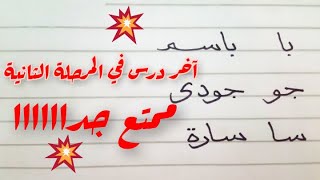 با باسم
آخر درس في المرحلة الثانية
جو جودى
ممتع جداااااا
سا سارة